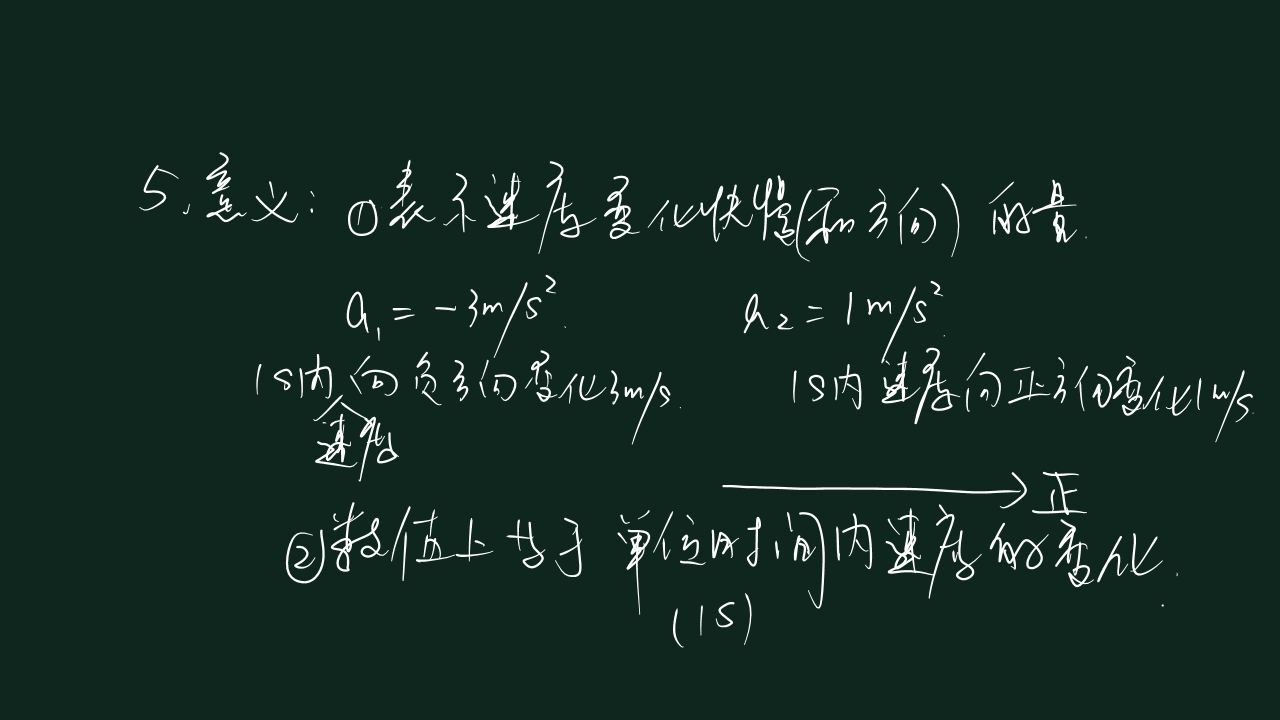 5、意义：①表示速度变化快慢(和方向)的量.
a₁ = -3m/s².
a₂ = 1m/s².
1s内向负方向变化3m/s.
速度
1s内速度向正方向变化1m/s.
正
②数值上等于单位时间内速度的变化.
(1s)